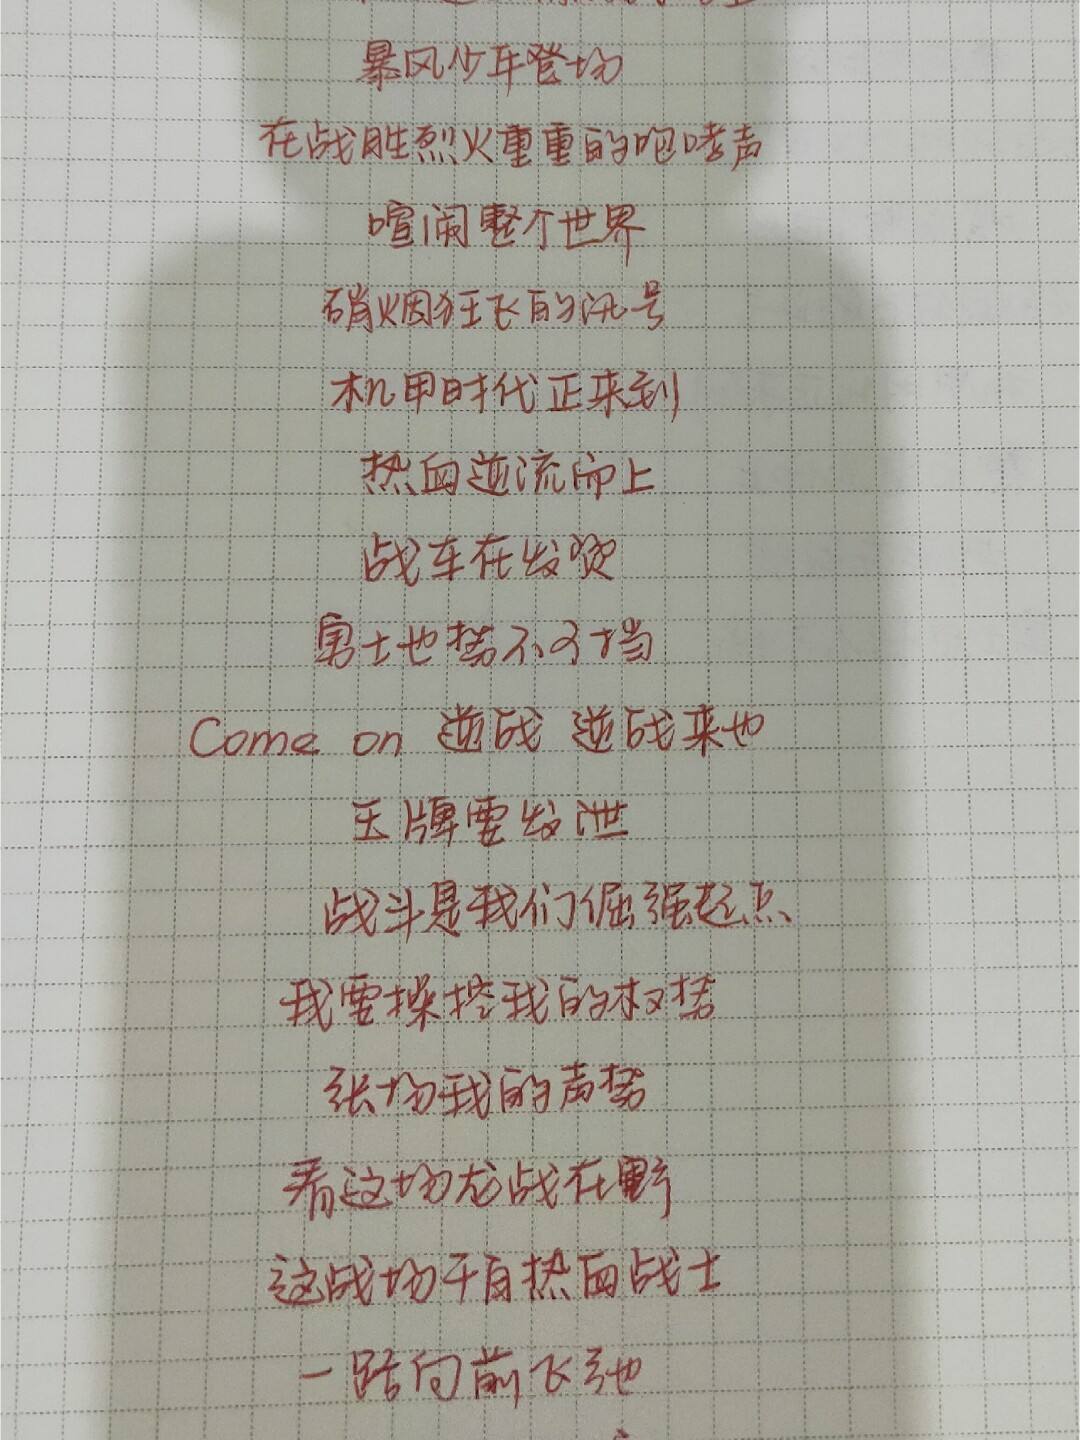 暴风少年登场
在战胜烈火重重的咆哮声
喧闹整个世界
硝烟狂飞的讯号
机甲时代正来到
热血逆流而上
战车在发烫
勇士也势不可挡
Come on 逆战 逆战来也
王牌要发泄
战斗是我们倔强起点
我要操控我的权势
张扬我的声势
看这场龙战在野
这战场千百热血战士
一路向前飞驰